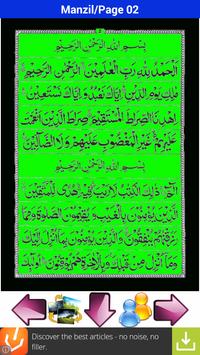 Manzil/Page 02
بِسْمِ اللهِ الرَّحْمٰنِ الرَّحِيْمِ
اَلْحَمْدُ لِلّٰهِ رَبِّ الْعٰلَمِيْنَ الرَّحْمٰنِ الرَّحِيْمِ
مٰلِكِ يَوْمِ الدِّيْنِ اِيَّاكَ نَعْبُدُ وَاِيَّاكَ نَسْتَعِيْنُ
اِهْدِنَا الصِّرَاطَ الْمُسْتَقِيْمَ صِرَاطَ الَّذِيْنَ اَنْعَمْتَ
عَلَيْهِمْ غَيْرِ الْمَغْضُوْبِ عَلَيْهِمْ وَلَا الضَّآلِّيْنَ
بِسْمِ اللهِ الرَّحْمٰنِ الرَّحِيْمِ
الٓمّٓ ذٰلِكَ الْكِتٰبُ لَا رَيْبَ فِيْهِ هُدًى لِّلْمُتَّقِيْنَ
الَّذِيْنَ يُؤْمِنُوْنَ بِالْغَيْبِ وَيُقِيْمُوْنَ الصَّلٰوةَ وَمِمَّا
رَزَقْنٰهُمْ يُنْفِقُوْنَ وَالَّذِيْنَ يُؤْمِنُوْنَ بِمَآ اُنْزِلَ اِلَيْكَ
وَمَآ اُنْزِلَ مِنْ قَبْلِكَ وَبِالْاٰخِرَةِ هُمْ يُوْقِنُوْنَ اُولٰٓئِكَ
Discover the best articles - no noise, no
filler.